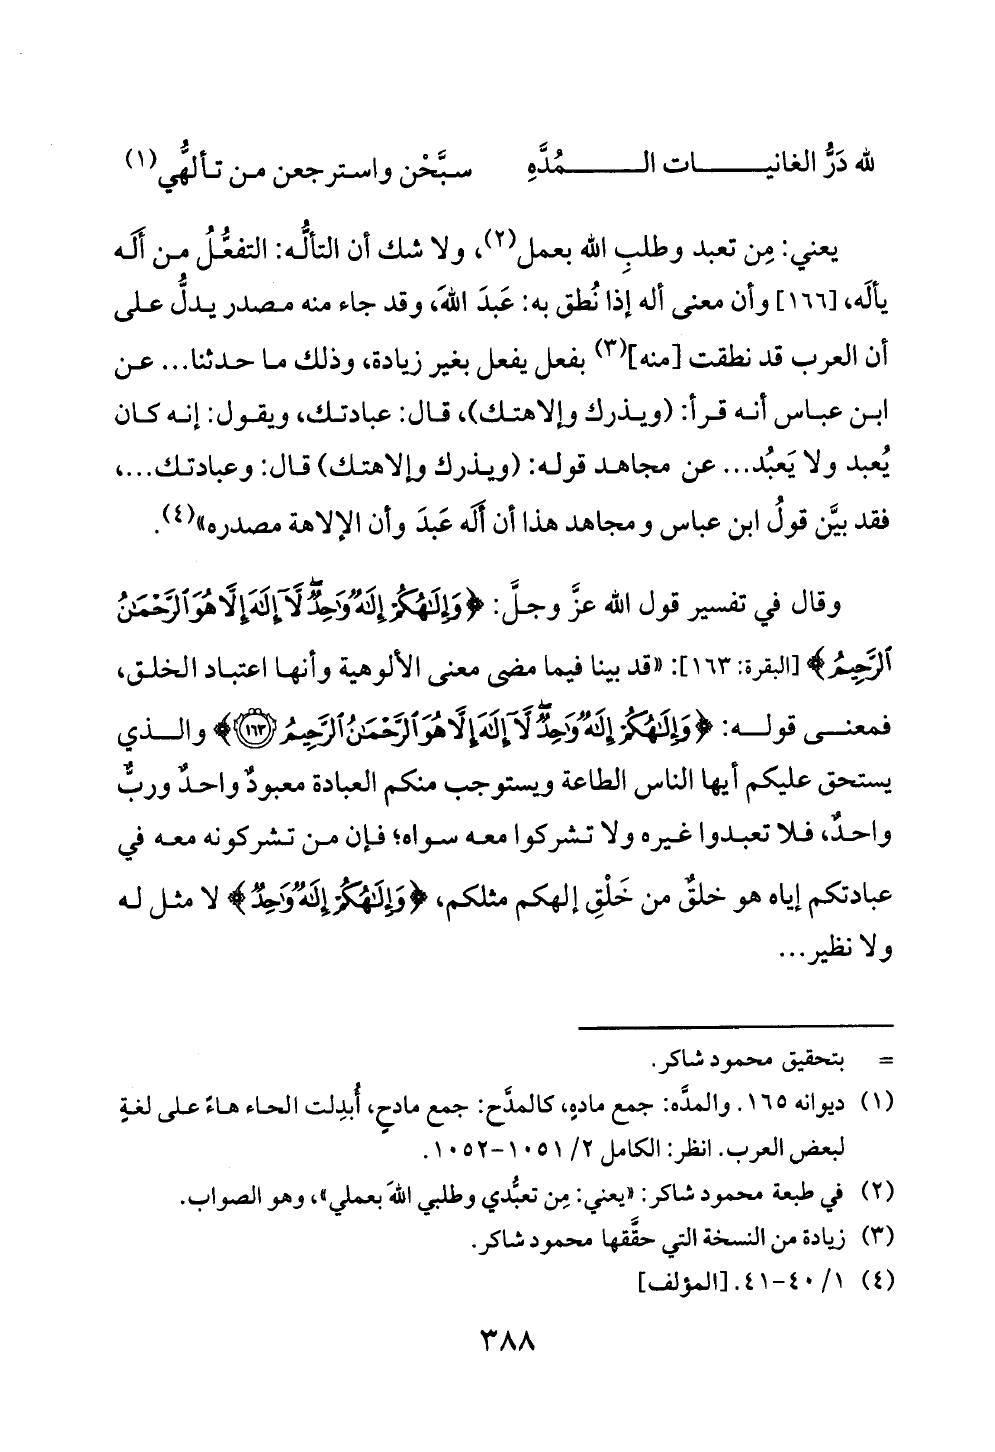 لله دَرُّ الغانيـــــات الـــــمُدَّهِ سبَّحْن واسترجعن من تألهُّي(١)
يعني: مِن تعبد وطلبِ الله بعمل(٢)، ولا شك أن التألُّه: التفعُّلُ من أَلَه
يألَه، [١٦٦] وأن معنى أله إذا نُطق به: عَبَدَ اللهَ، وقد جاء منه مصدر يدلُّ على
أن العرب قد نطقت [منه](٣) بفعل يفعل بغير زيادة، وذلك ما حدثنا... عن
ابن عباس أنه قرأ: (ويذرك وإلاهتك)، قال: عبادتك، ويقول: إنه كان
يُعبد ولا يَعبُد... عن مجاهد قوله: (ويذرك وإلاهتك) قال: وعبادتك...،
فقد بيَّن قولُ ابن عباس ومجاهد هذا أن أَلَه عَبَدَ وأن الإلاهة مصدره»(٤).
وقال في تفسير قول الله عزَّ وجلَّ: ﴿وَإِلَٰهُكُمْ إِلَٰهٌ وَٰحِدٌ ۖ لَّآ إِلَٰهَ إِلَّا هُوَ ٱلرَّحْمَٰنُ
ٱلرَّحِيمُ﴾ [البقرة: ١٦٣]: «قد بينا فيما مضى معنى الألوهية وأنها اعتباد الخلق،
فمعنـى قولـه: ﴿وَإِلَٰهُكُمْ إِلَٰهٌ وَٰحِدٌ ۖ لَّآ إِلَٰهَ إِلَّا هُوَ ٱلرَّحْمَٰنُ ٱلرَّحِيمُ ١٦٣﴾ والـذي
يستحق عليكم أيها الناس الطاعة ويستوجب منكم العبادة معبودٌ واحدٌ وربٌّ
واحدٌ، فلا تعبدوا غيره ولا تشركوا معه سواه؛ فإن من تشركونه معه في
عبادتكم إياه هو خلقٌ من خَلْقِ إلهكم مثلكم، ﴿وَإِلَٰهُكُمْ إِلَٰهٌ وَٰحِدٌ﴾ لا مثل له
ولا نظير...
= بتحقيق محمود شاكر.
(١) ديوانه ١٦٥. والمدَّه: جمع مادهٍ، كالمدَّح: جمع مادحٍ، أُبدِلت الحاء هاءً على لغةٍ
لبعض العرب. انظر: الكامل ٢/ ١٠٥١-١٠٥٢.
(٢) في طبعة محمود شاكر: «يعني: مِن تعبُّدي وطلبي اللهَ بعملي»، وهو الصواب.
(٣) زيادة من النسخة التي حقَّقها محمود شاكر.
(٤) ١/ ٤٠-٤١. [المؤلف]
٣٨٨